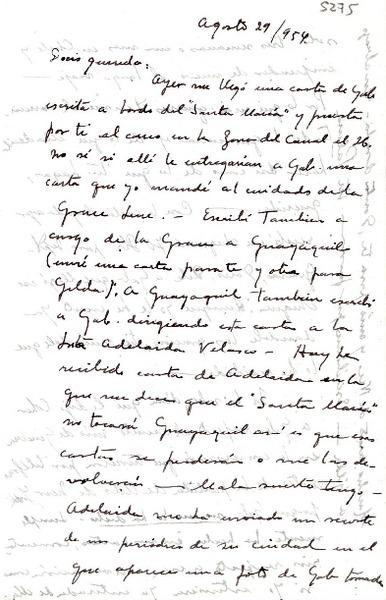 5275
Agosto 29/954
Doris querida:
Ayer me llegó una carta de Gab
escrita a bordo del "Santa María" y puesta
por ti al correo en la Zona del Canal el 26,
no sé si allí le entregarían a Gab. una
carta que yo mandé al cuidado de la
Grace Line. — Escribí Tambien a
cargo de la Grace a Guayaquil
(envié una carta para te y otra para
Gilda). A Guayaquil Tambien escribí
a Gab. dirigiendo esta carta a la
Adelaida Velasco — Hoy he
recibido carta de Adelaida en la
que me dice que el "Santa María"
no tocará Guayaquil así es que mis
cartas se perderán o me las de-
volverán — Mala suerte tengo —
Adelaida me ha enviado un recorte
de un periódico de su ciudad en el
que aparece una foto de Gab tomada